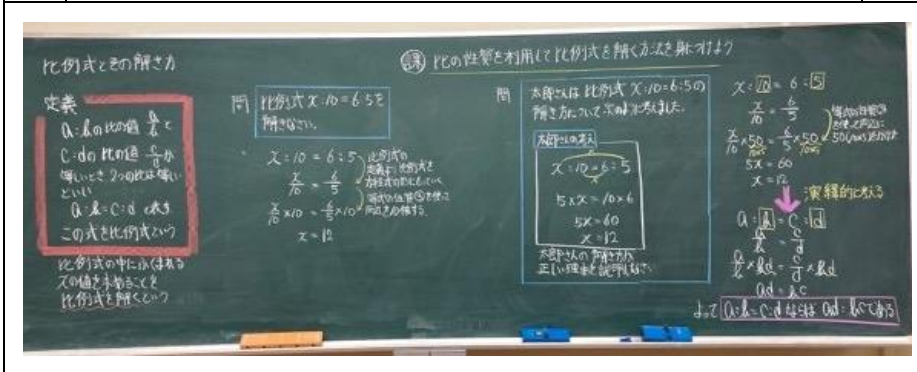 比例式とその解き方
定義
a:bの比の値 a/b と
c:dの比の値 c/d が
等しいとき、2つの比は等しい
といい
a:b=c:d と表す
この式を比例式という
比例式の中にふくまれる
xの値を求めることを
比例式を解くという
課 比の性質を利用して比例式を解く方法を身につけよう
問 比例式 x:10=6:5を
解きなさい。
x:10=6:5
x/10=6/5
x/10×10=6/5×10
x=12
比例式の
定義より比例式を
方程式の形にもっていく
等式の性質③を使って
問 太郎さんは比例式 x:10=6:5の
解き方について次のように考えました。
太郎さんの考え
x:10=6:5
5×x=10×6
5x=60
x=12
太郎さんの解き方が
正しい理由を説明しなさい
x:10=6:5
x/10=6/5
x/10×50=6/5×50
5x=60
x=12
等式の性質③
を使って両辺に
a:b=c:d
a/b=c/d
a/b×bd=c/d×bd
ad=bc
よって a:b=c:d ならば ad=bcである